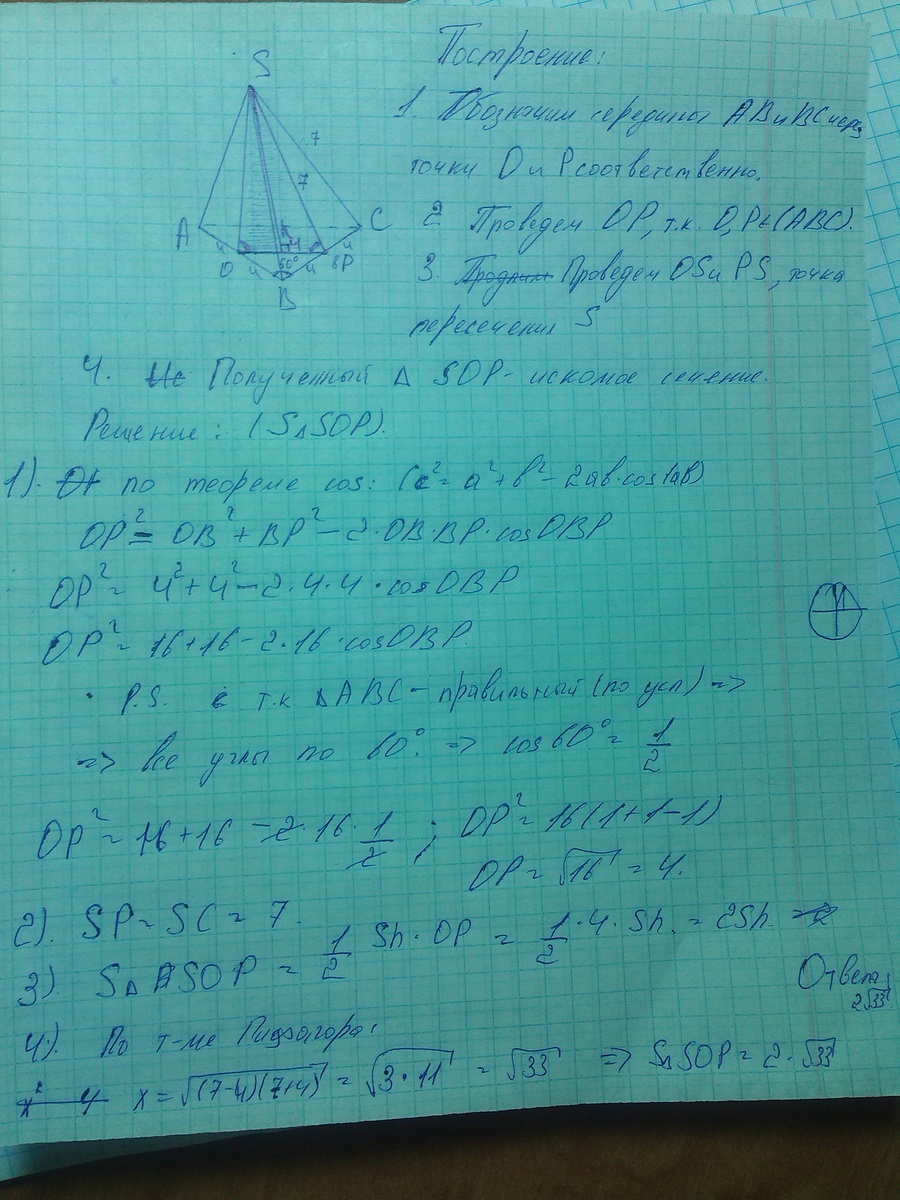 Построение:
S
7
7
A
C
4
4
O
4
60°
4
P
B
1. Обозначим середины AB и BC через
точки O и P соответственно.
2 Проведем OP, т.к. O,P∈(ABC).
3. Продлим Проведем OS и PS, точка
пересечения S
4. Полученный Δ SOP - искомое сечение.
Решение: (SΔSOP).
1). по теореме cos: (c²= a²+b²-2ab·cos(ab)
OP²= OB²+BP²-2·OB·BP·cosOBP
OP²= 4²+4²-2·4·4·cosOBP
OP²= 16+16-2·16·cosOBP.
P.S. т.к ΔABC - правильный (по усл) =>
=> все углы по 60°. => cos60°= 1/2
OP²= 16+16-2·16·1/2 ; OP²=16(1+1-1)
OP=√16 = 4.
2). SP=SC= 7.
3). SΔSOP = 1/2 Sh·OP = 1/2·4·Sh. = 2Sh
Ответ:
2√33
4). По т-ме Пифагора:
x² 4 x=√(7-4)(7+4) = √3·11 = √33 => SΔSOP= 2·√33